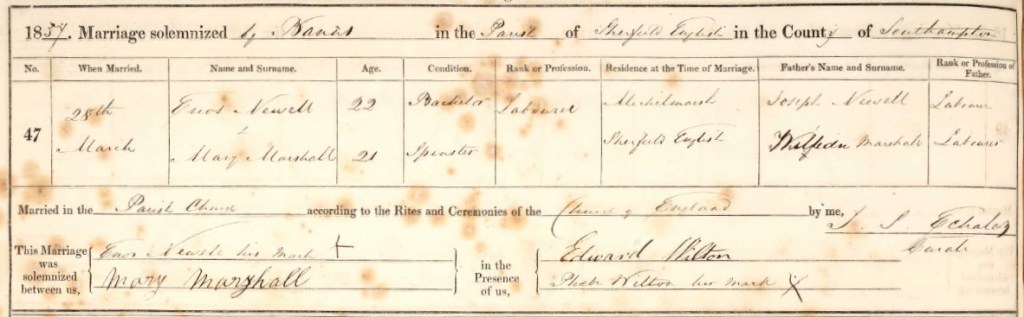 1857. Marriage solemnized by Banns in the Parish of Sherfield English in the County of Southampton
No. When Married. Name and Surname. Age. Condition. Rank or Profession. Residence at the Time of Marriage. Father's Name and Surname. Rank or Profession of Father.
47 28th March Enos Newell 22 Bachelor Labourer Michelmersh Joseph Newell Labourer
& Mary Marshall 21 Spinster Sherfield English Marshall Labourer
Married in the Parish Church according to the Rites and Ceremonies of the Church of England by me, J. S. Echalaz
Curate
This Marriage was solemnized between us, Enos Newell his mark + in the Presence of us, Edward Wilton
Mary Marshall Phebe Wilton her mark X